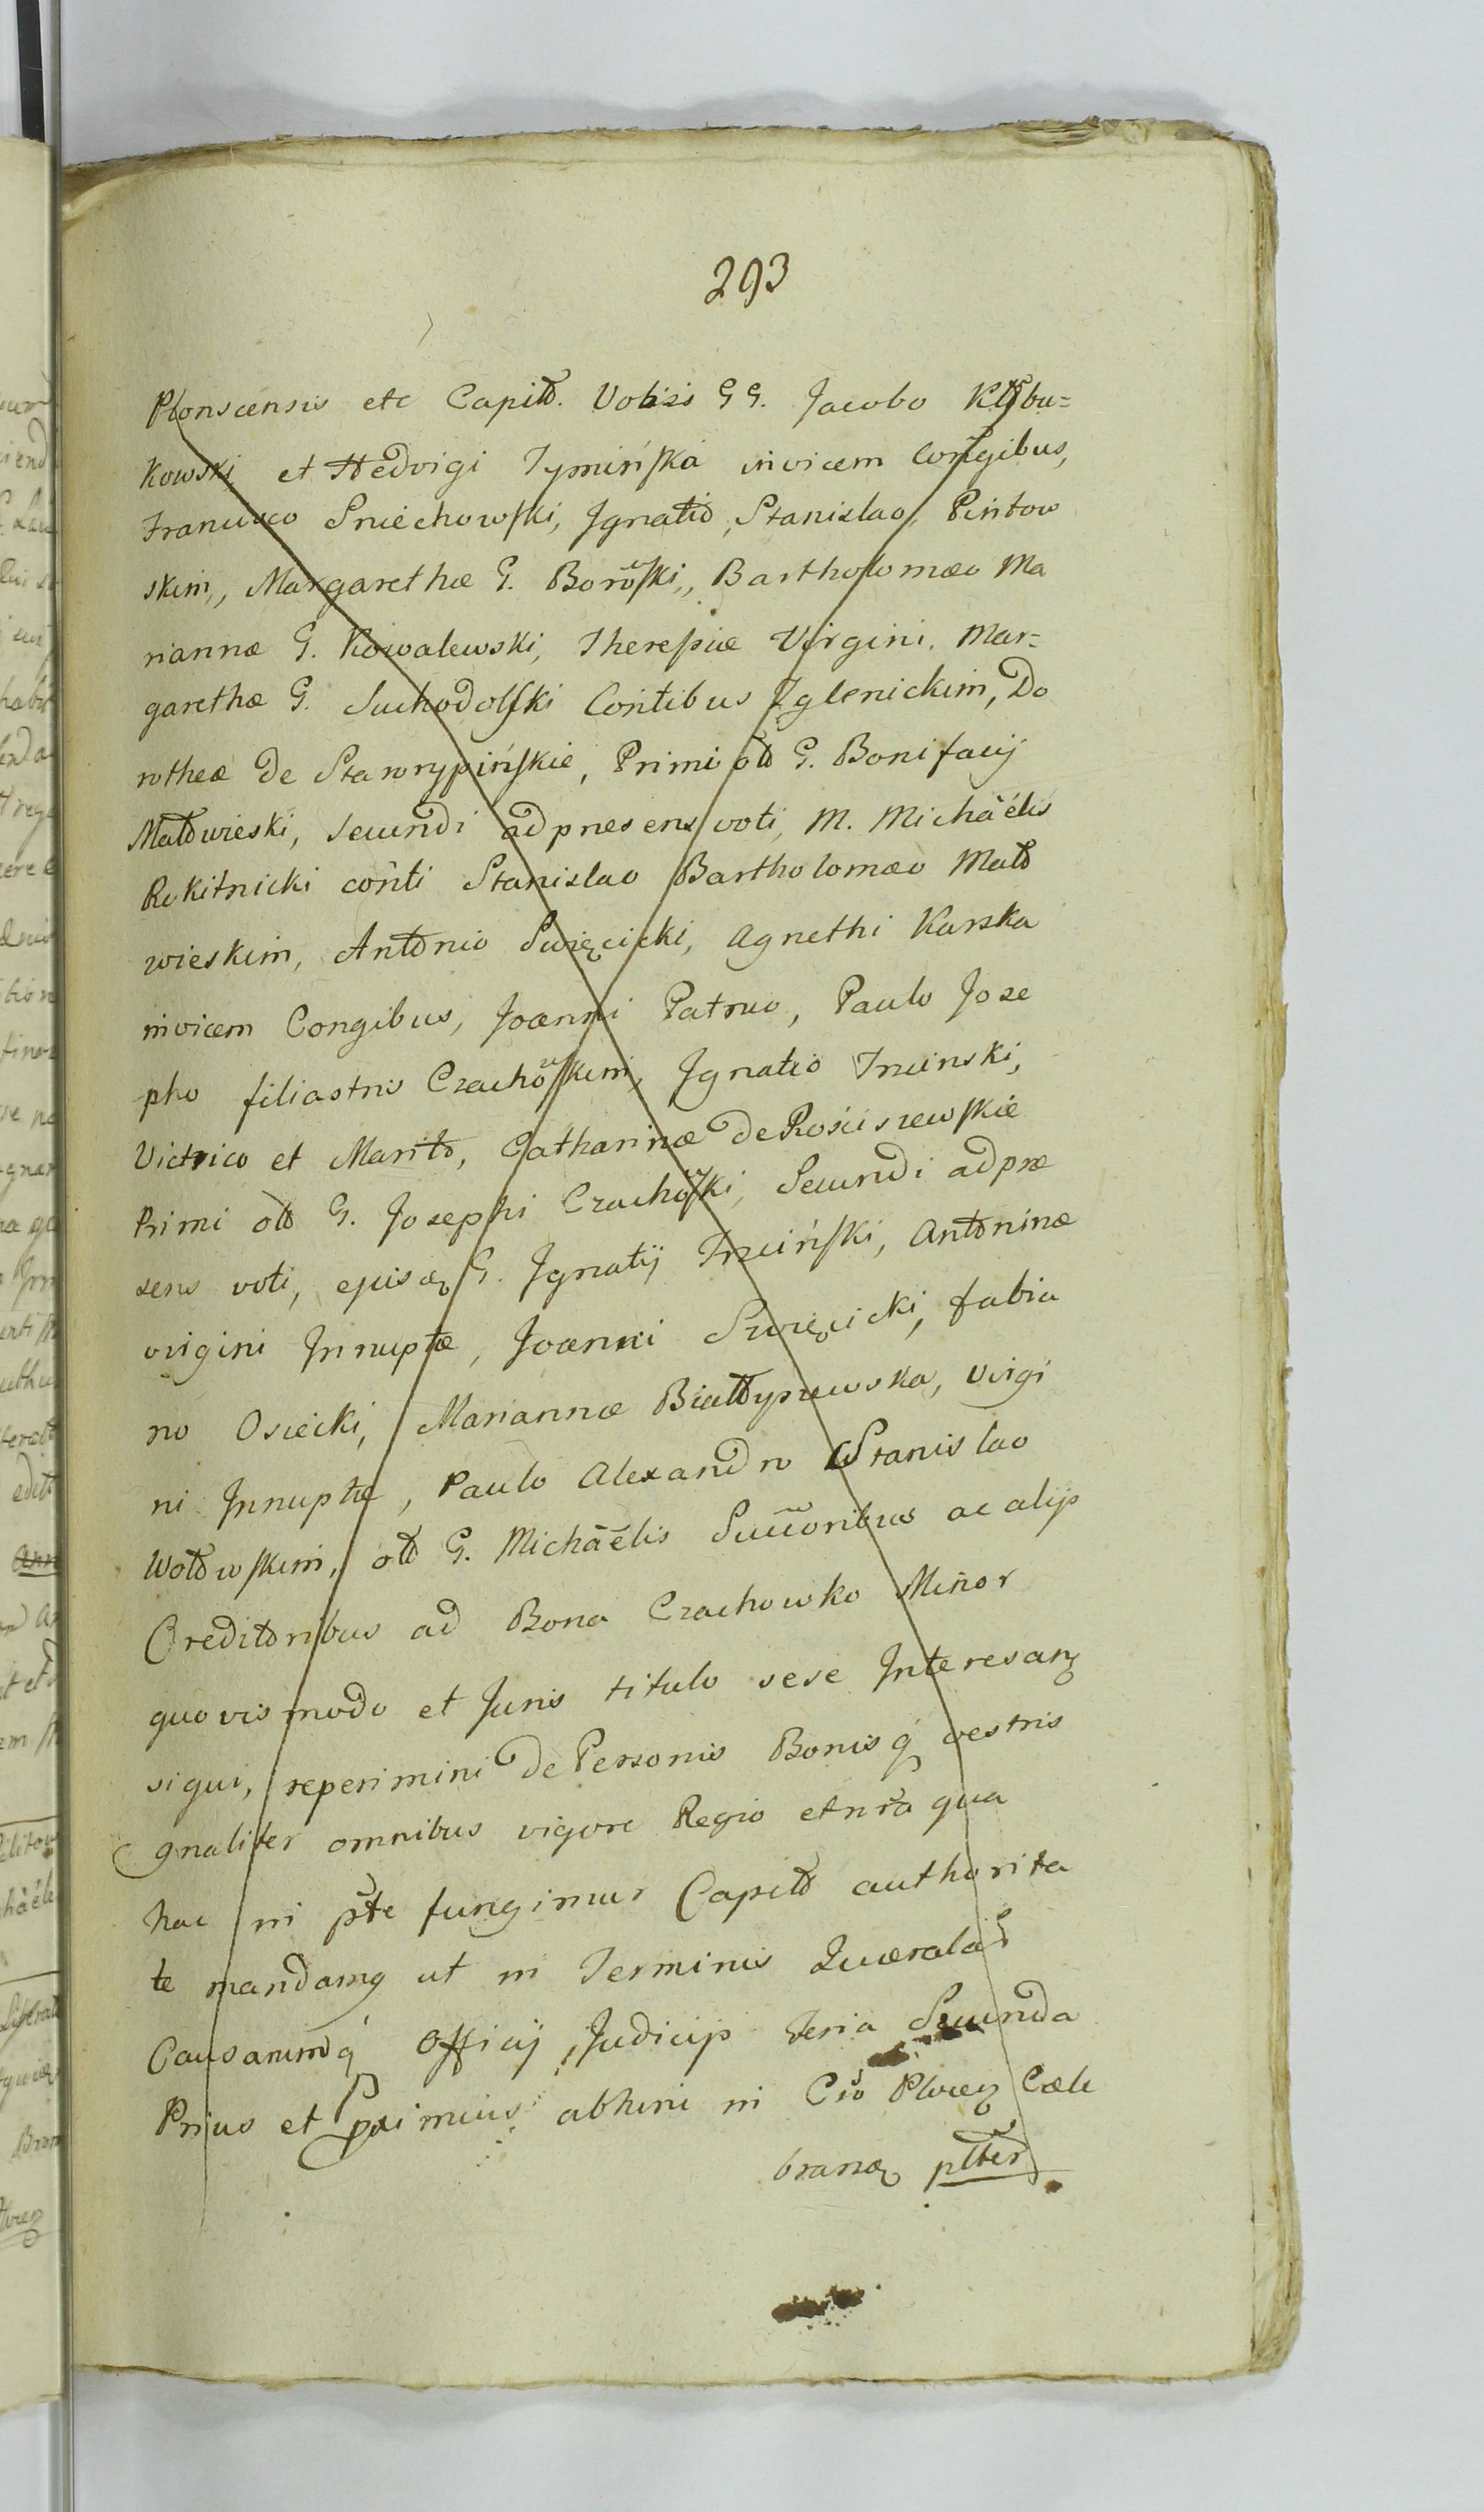 293
Plonscensis etc Capito. Vobis GG. Jacobo Kłobu=
kowski et Hedvigi Tymińska invicem Congibus,
Francisco Sniechowski, Ignatio, Stanislao, Pintow
skim, Margarethæ G. Borowski, Bartholomæo Ma
riannæ G. Kowalewski, Theresiæ Virgini, Mar=
garethæ G. Suchodolski Contibus Zglenickim, Do
rotheæ de Starorypińskie, Primi olo G. Bonifacij
Małowieski, secundi ad præsens voti, M. Michaëlis
Rokitnicki conti Stanislao Bartholomæo Mało
wieskim, Antonio Swięcicki, Agnethi Karska
invicem Congibus, Joanni Patruo, Paulo Jose
pho filiastris Czachowskim, Ignatio Trcinski,
Victrico et Marito, Catharinæ de Rościszewskie
Primi olo G. Josephi Czachowski, Secundi ad præ
sens voti, ejusq G. Ignatij Trzcinski, Antoninæ
virgini Innuptæ, Joanni Swięcicki, fabia
no Osiecki, Mariannæ Białłyszewska, virgi
ni Innuptæ, Paulo Alexandro Stanislao
Wołowskim, olo G. Michaëlis Succoribus ac alijs
Creditoribus ad Bona Czachowko Minor
quovis modo et Juris titulo sese Interesanz
siqui, reperimini de Personis Bonisq vestris
gnaliter omnibus vigore Regio et nra qua
hac in pte fungimur Capito authorita
te mandamg ut in Terminis Quærelar
Causarumq Officij Judicijs feria Secunda
Prius et proximius abhinc in Cro Plocen Cæle
branz ptter